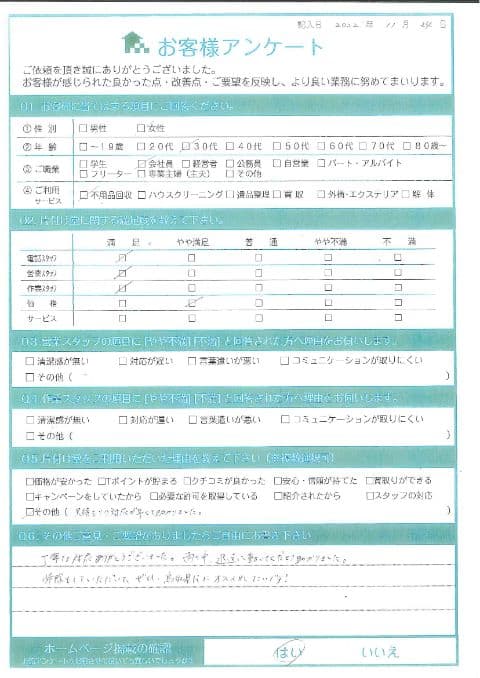 記入日 2022年 11月 日
お客様アンケート
ご依頼を頂き誠にありがとうございました。
お客様が感じられた良かった点・改善点・ご要望を反映し、より良い業務に努めてまいります。
Q1. お客様に当てはまる項目にご回答ください。
①性別 □男性 □女性
②年齢 □～19歳 □20代 □30代 □40代 □50代 □60代 □70代 □80歳～
③ご職業 □学生 □会社員 □経営者 □公務員 □自営業 □パート・アルバイト
□フリーター □専業主婦（主夫） □その他
④ご利用サービス □不用品回収 □ハウスクリーニング □遺品整理 □買取 □外構・エクステリア □解体
Q2. 片付け堂に関する満足度を教えて下さい。
満足 やや満足 普通 やや不満 不満
電話スタッフ □ □ □ □ □
営業スタッフ □ □ □ □ □
作業スタッフ □ □ □ □ □
価格 □ □ □ □ □
サービス □ □ □ □ □
Q3. 営業スタッフの項目に [やや不満] [不満] と回答された方へ理由をお伺いします。
□清潔感が無い □対応が遅い □言葉遣いが悪い □コミュニケーションが取りにくい
□その他（ ）
Q4. 作業スタッフの項目に [やや不満] [不満] と回答された方へ理由をお伺いします。
□清潔感が無い □対応が遅い □言葉遣いが悪い □コミュニケーションが取りにくい
□その他（ ）
Q5. 片付け堂をご利用いただいた理由を教えて下さい（※複数回答可）
□価格が安かった □Tポイントが貯まる □クチコミが良かった □安心・信頼が持てた □買取りができる
□キャンペーンをしていたから □必要な許可を取得している □紹介されたから □スタッフの対応
□その他（ 見積もりの対応が早くて助かりました。 ）
Q6. その他ご意見・ご要望がありましたらご自由にお書き下さい
丁寧な ありがとうございました。 助かりました。
ホームページ掲載の確認 はい いいえ